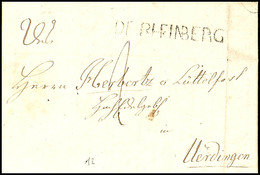 DE RHEINBERG
Herrn Herbertz a Lüttelforst
in
Uerdingen
12